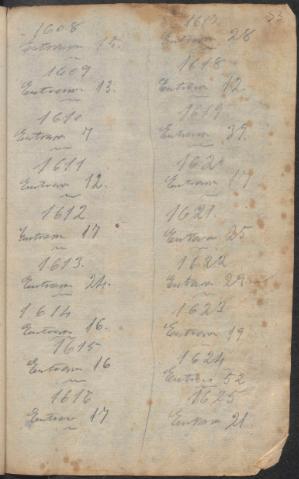 1608
Entraram 15.
1609
Entraram 13.
1610
Entraram 7
1611
Entraram 12.
1612
Entraram 17
1613.
Entraram 24.
1614
Entraram 16.
1615
Entraram 16
1616
Entraram 17
1617
Entraram 28
1618
Entraram 12.
1619
Entraram 39.
162
Entraram 17
1621.
Entraram 25
1622
Entraram 29
1623
Entraram 19
1624
52
1625
Entraram 21.